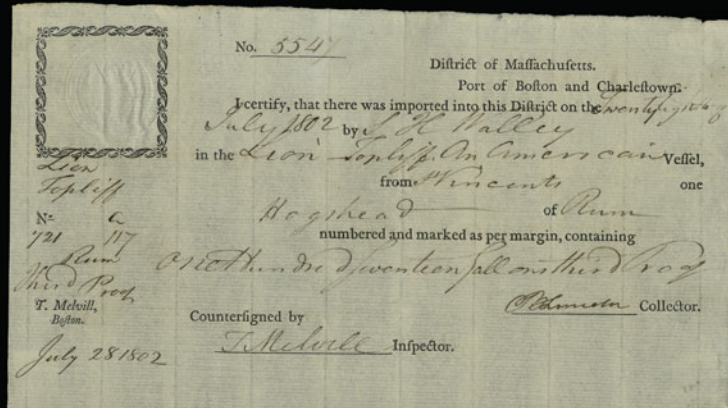 No. 5547
District of Massachusetts.
Port of Boston and Charlestown.
I certify, that there was imported into this District on the Twenty eight of
July 1802 by S H Walley
in the Lion Topliff An American Vessel,
from St Vincents one
Hogshead of Rum
numbered and marked as per margin, containing
One Hundred Seventeen Gallons third Proof
Collector.
Countersigned by
T Melvill Inspector.
Lion
Topliff
No G
721 117
Rum
third Proof
T. Melvill,
Boston.
July 28 1802